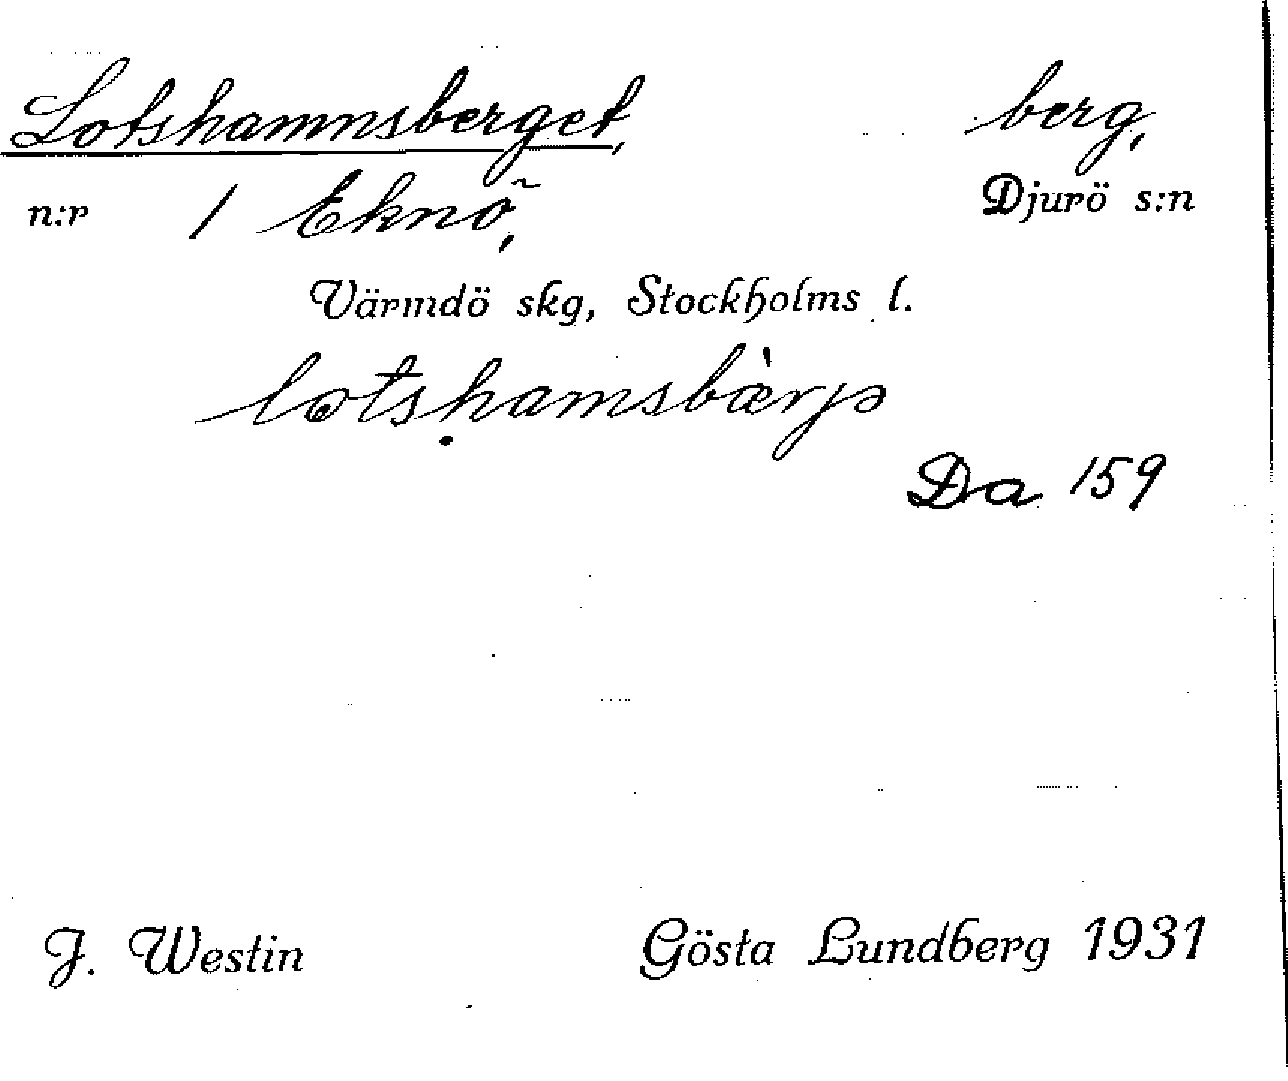 Lotshamnsberget, berg,
n:r 1 Eknö, Djurö s:n
Värmdö skg, Stockholms l.
lotsḥamsbàrjə
Da 159
J. Westin Gösta Lundberg 1931